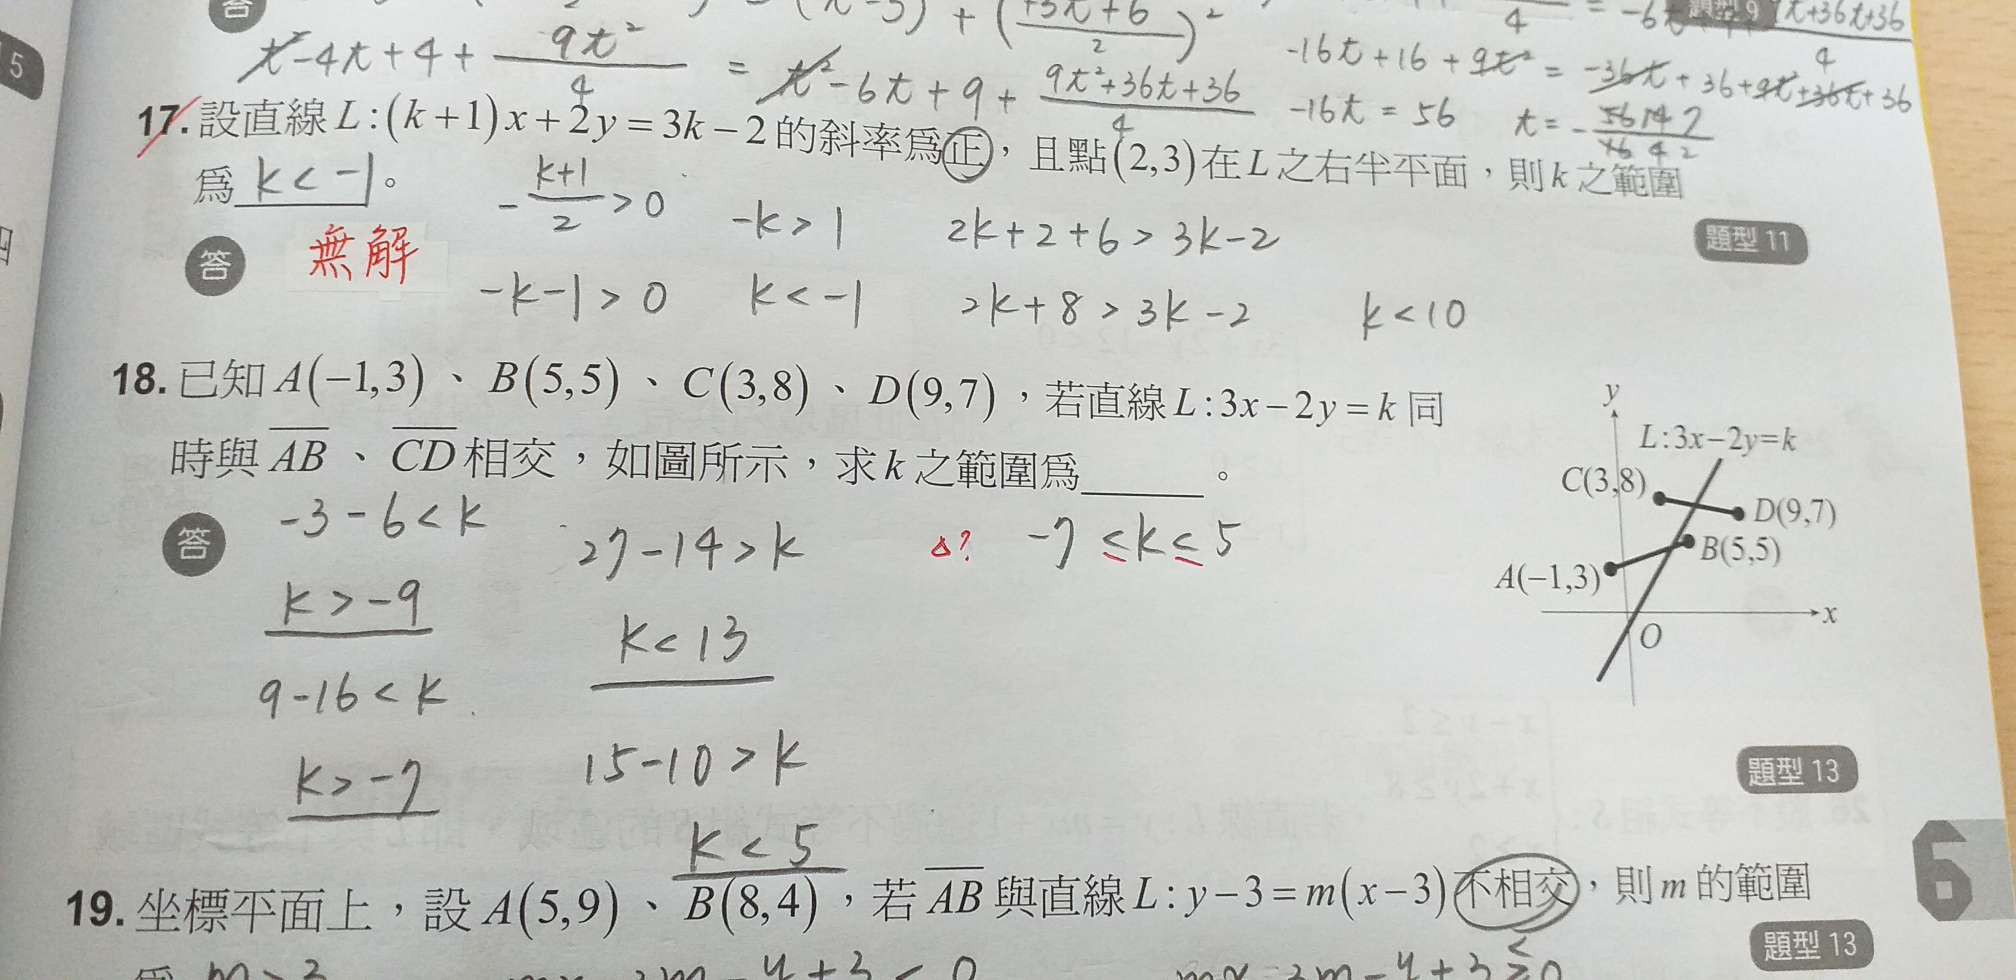 答
5
t²-4t+4+9t²/4 = t²-6t+9+(9t²+36t+36)/4
-16t+16+9t² = -36t+36+9t²+36t+36
-16t = 56
17. 設直線L:(k+1)x+2y=3k-2的斜率為正，且點(2,3)在L之右半平面，則k之範圍
為 k<-1。
題型 11
答 無解
-(k+1)/2>0
-k>1
2k+2+6>3k-2
-k-1>0
k<-1
2k+8>3k-2
k<10
18. 已知A(-1,3)、B(5,5)、C(3,8)、D(9,7)，若直線L:3x-2y=k同
時與AB、CD相交，如圖所示，求k之範圍為______。
答
-3-6<k
27-14>k
△?
-7≤k≤5
k>-9
k<13
9-16<k
15-10>k
k>-7
k<5
y
L:3x-2y=k
C(3,8)
D(9,7)
B(5,5)
A(-1,3)
O
x
題型 13
6
19. 坐標平面上，設A(5,9)、B(8,4)，若AB與直線L:y-3=m(x-3)不相交，則m的範圍
題型 13